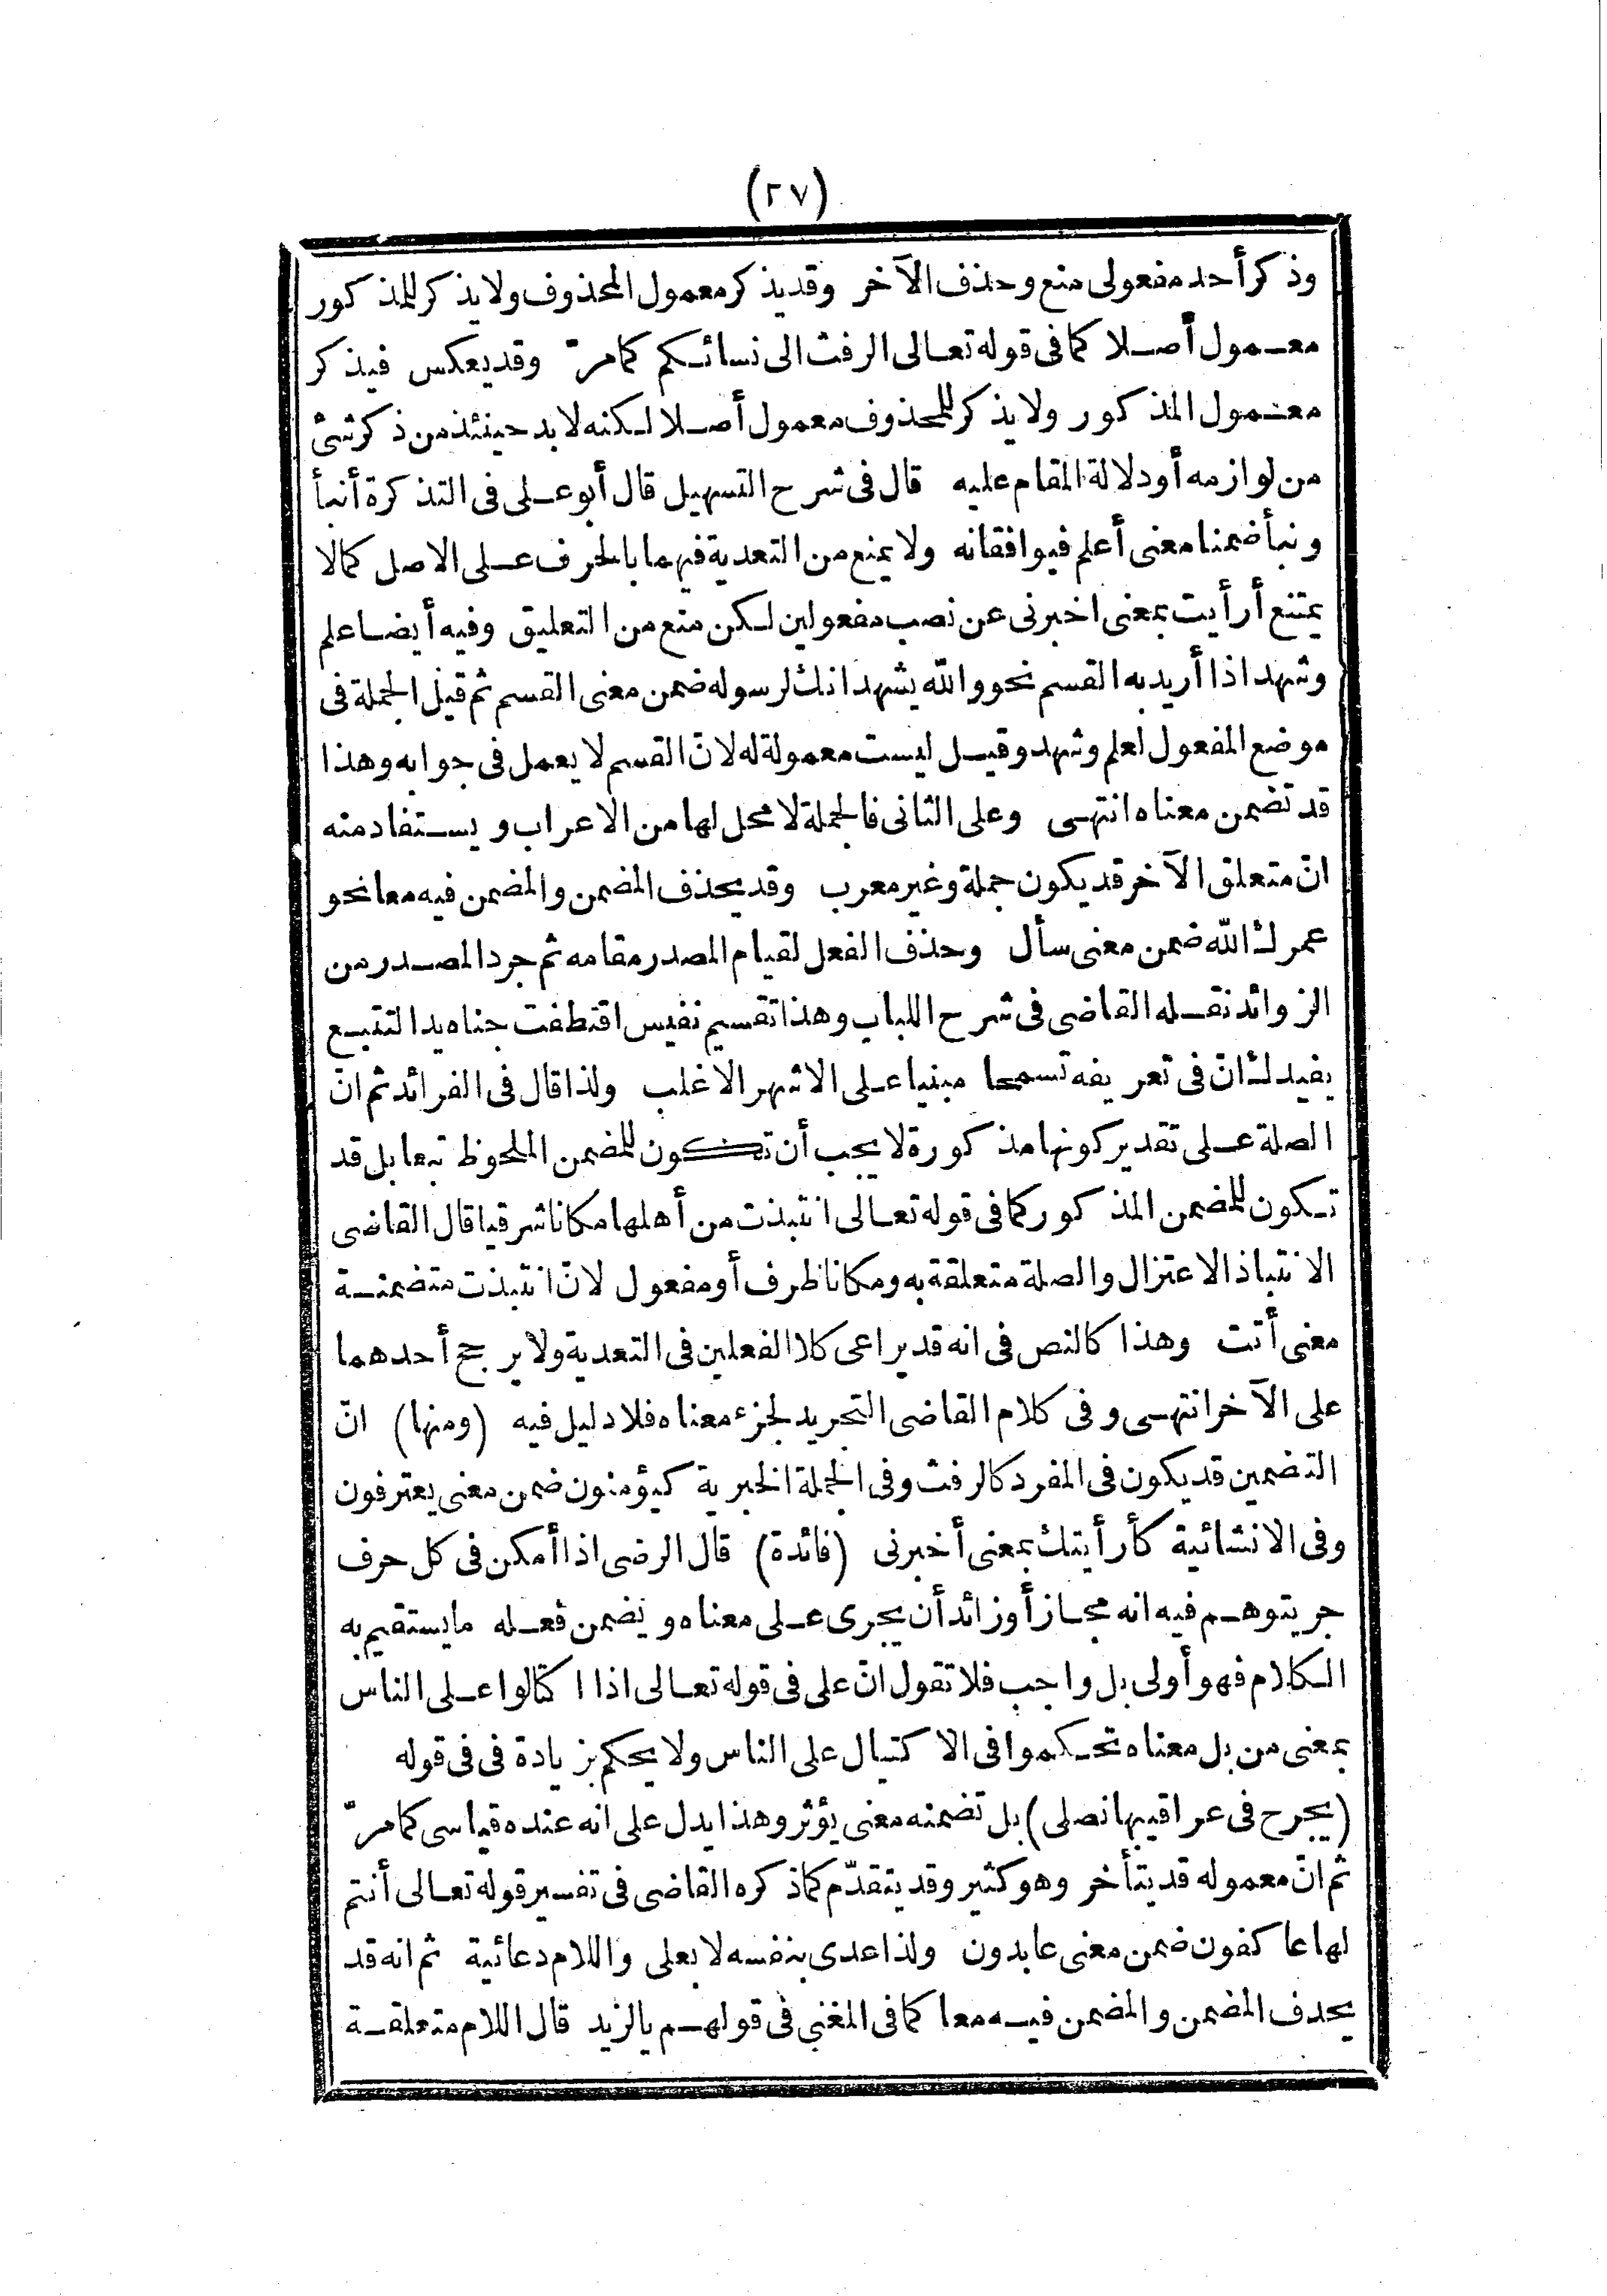 (٢٧)
وذكر أحد مفعولى منع وحذف الآخر وقد يذكر معمول المحذوف ولا يذكر للمذكور
معمول أصلا كما فى قوله تعالى الرفث الى نسائكم كما مرّ وقد يعكس فيذكر
معمول المذكور ولا يذكر للمحذوف معمول أصلا لكنه لابد حينئذ من ذكر شئ
من لوازمه أو دلالة المقام عليه قال فى شرح التسهيل قال أبو على فى التذكرة أنبأ
ونبأ ضمنا معنى أعلم فيوافقانه ولا يمنع من التعدية فيهما بالحرف على الاصل كما لا
يمتنع أرأيت بمعنى اخبرنى عن نصب مفعولين لكن منع من التعليق وفيه أيضا علم
وشهد اذا أريد به القسم نحو والله يشهد انك لرسوله ضمن معنى القسم ثم قيل الجملة فى
موضع المفعول لعلم وشهد وقيل ليست معمولة له لانّ القسم لا يعمل فى جوابه وهذا
قد تضمن معناه انتهى وعلى الثانى فالجملة لا محل لها من الاعراب ويستفاد منه
انّ متعلق الآخر قد يكون جملة وغير معرب وقد يحذف المضمن والمضمن فيه معا نحو
عمرك الله ضمن معنى سأل وحذف الفعل لقيام المصدر مقامه ثم جرد المصدر من
الزوائد نقله القاضى فى شرح اللباب وهذا تقسيم نفيس اقتطفت جناه يد التتبع
يفيدك انّ فى تعريفه تسمحا مبنيا على الاشهر الاغلب ولذا قال فى الفرائد ثم انّ
الصلة على تقدير كونها مذكورة لا يجب أن تكون للمضمن الملحوظ تبعا بل قد
تكون للمضمن المذكور كما فى قوله تعالى انتبذت من أهلها مكانا شرقيا قال القاضى
الانتباذ الاعتزال والصلة متعلقة به ومكانا ظرف أو مفعول لانّ انتبذت متضمنة
معنى أتت وهذا كالنص فى انه قد يراعى كلا الفعلين فى التعدية ولا يرجح أحدهما
على الآخر انتهى وفى كلام القاضى التجريد لجزء معناه فلا دليل فيه (ومنها) انّ
التضمين قد يكون فى المفرد كالرفث وفى الجملة الخبرية كيؤمنون ضمن معنى يعترفون
وفى الانشائية كأرأيتك بمعنى أخبرنى (فائدة) قال الرضى اذا أمكن فى كل حرف
جر يتوهم فيه انه مجاز أو زائد أن يجرى على معناه ويضمن فعله مايستقيم به
الكلام فهو أولى بل واجب فلا تقول انّ على فى قوله تعالى اذا اكتالوا على الناس
بمعنى من بل معناه تحكموا فى الاكتيال على الناس ولا يحكم بزيادة فى فى قوله
(يجرح فى عراقيبها نصلى) بل تضمنه معنى يؤثر وهذا يدل على انه عنده قياسى كما مرّ
ثم انّ معموله قد يتأخر وهو كثير وقد يتقدّم كما ذكره القاضى فى تفسير قوله تعالى أنتم
لها عاكفون ضمن معنى عابدون ولذا عدى بنفسه لا بعلى واللام دعائية ثم انه قد
يحذف المضمن والمضمن فيه معا كما فى المغنى فى قولهم يالزيد قال اللام متعلقة